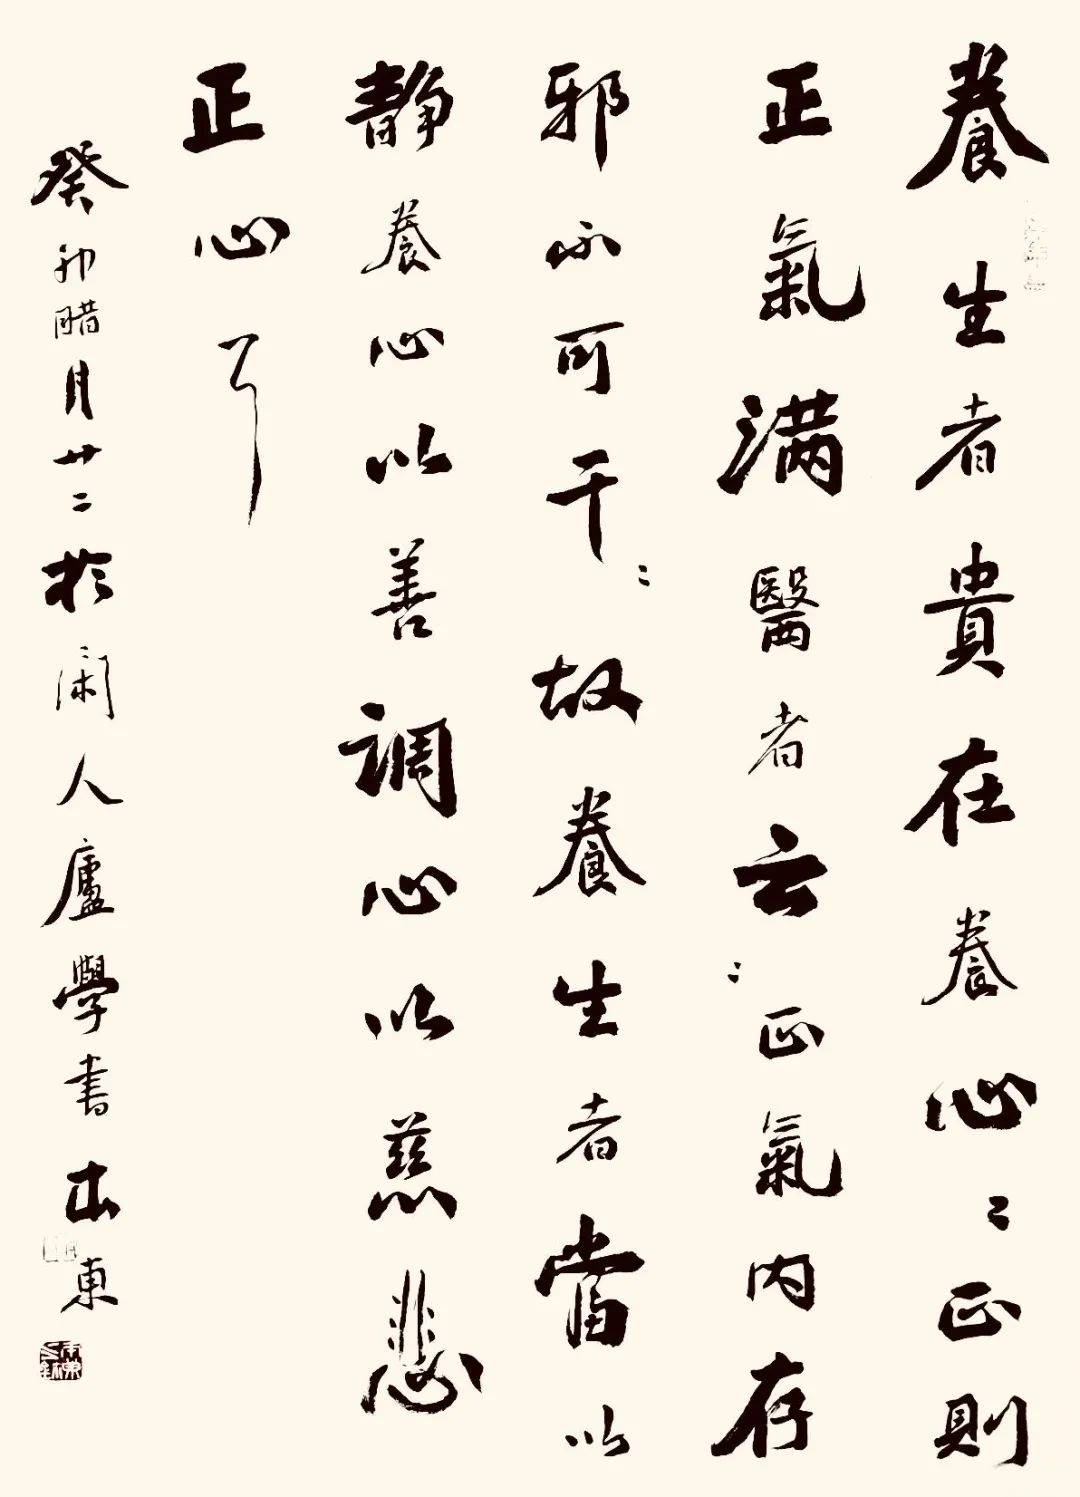 養生者貴在養心〻正則
正氣滿醫者云正氣内存
邪不可干故養生者當以
静養心以善調心以慈悲
正心耳
癸卯腊月廿二於闲人廬學書 東